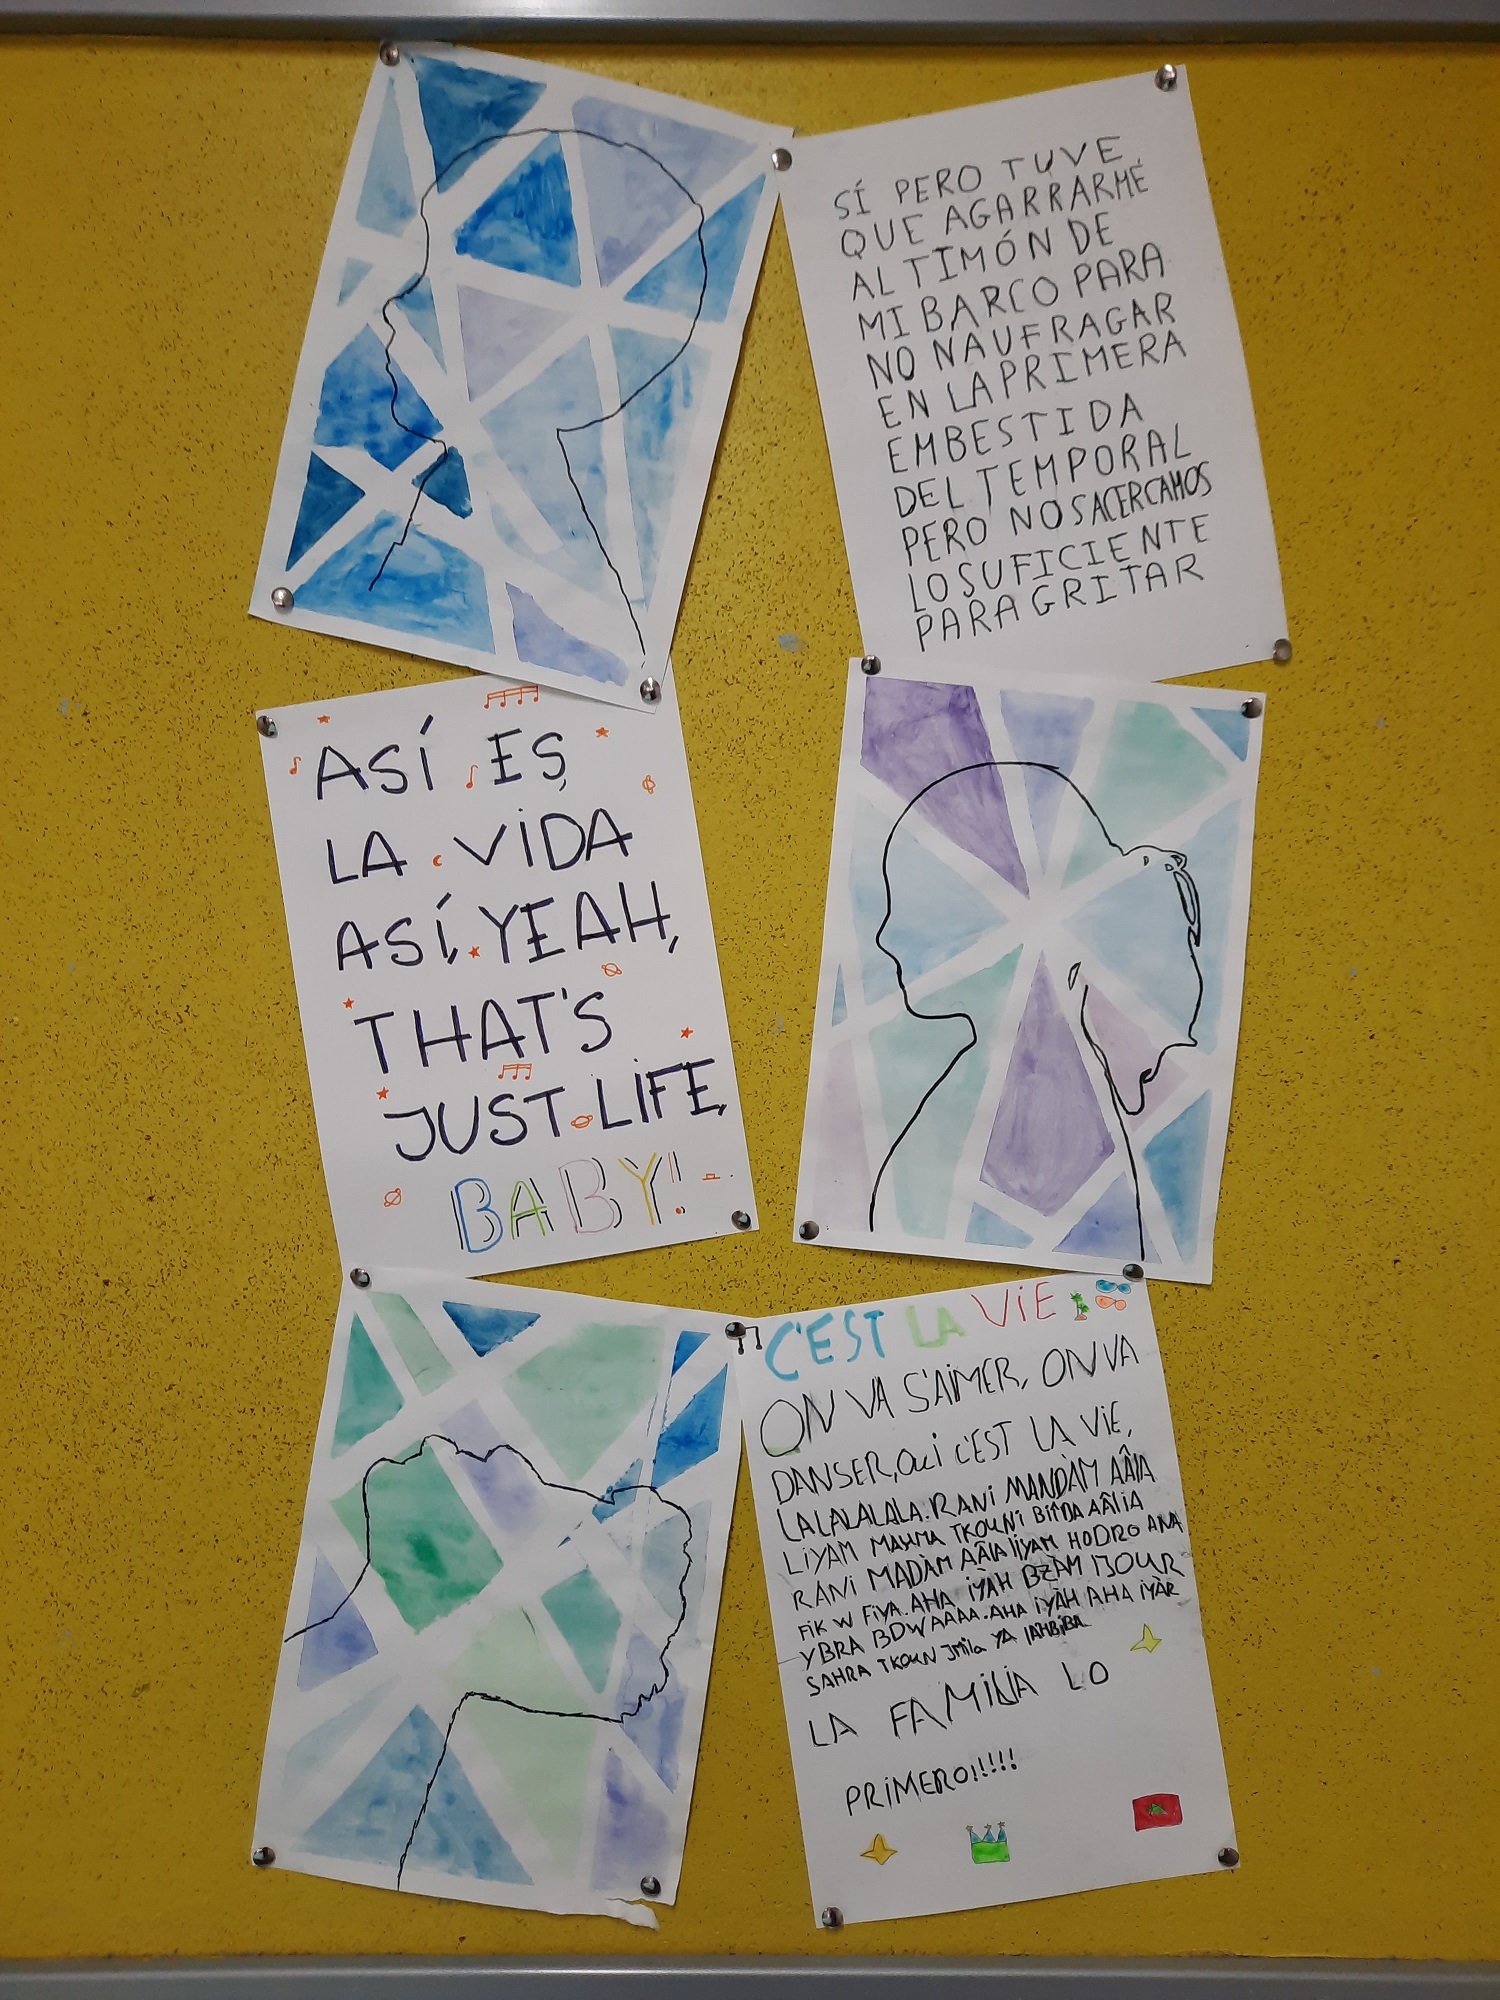 SÍ PERO TUVE
QUE AGARRARME
AL TIMÓN DE
MI BARCO PARA
NO NAUFRAGAR
EN LA PRIMERA
EMBESTIDA
DEL TEMPORAL
PERO NOS ACERCAMOS
LO SUFICIENTE
PARA GRITAR
ASÍ ES
LA VIDA
ASÍ, YEAH,
THAT'S
JUST LIFE,
BABY!
C'EST LA VIE
ON VA S'AIMER, ON VA
DANSER, OUI C'EST LA VIE,
LALALALALA. RANI MANDAM AÂIA
LIYAM MAHMA TKOUNI BITDA AÂLIA
RANI MADAM AÂIA LIYAM HODRO ANA
FIK W FIYA. AHA IYÀH BZAM JOUR
YBRA BDWAAAA. AHA IYÀH AHA IYÀR
SAHRA TKOUN JMILA YA
LA FAMILIA LO
PRIMERO!!!!!